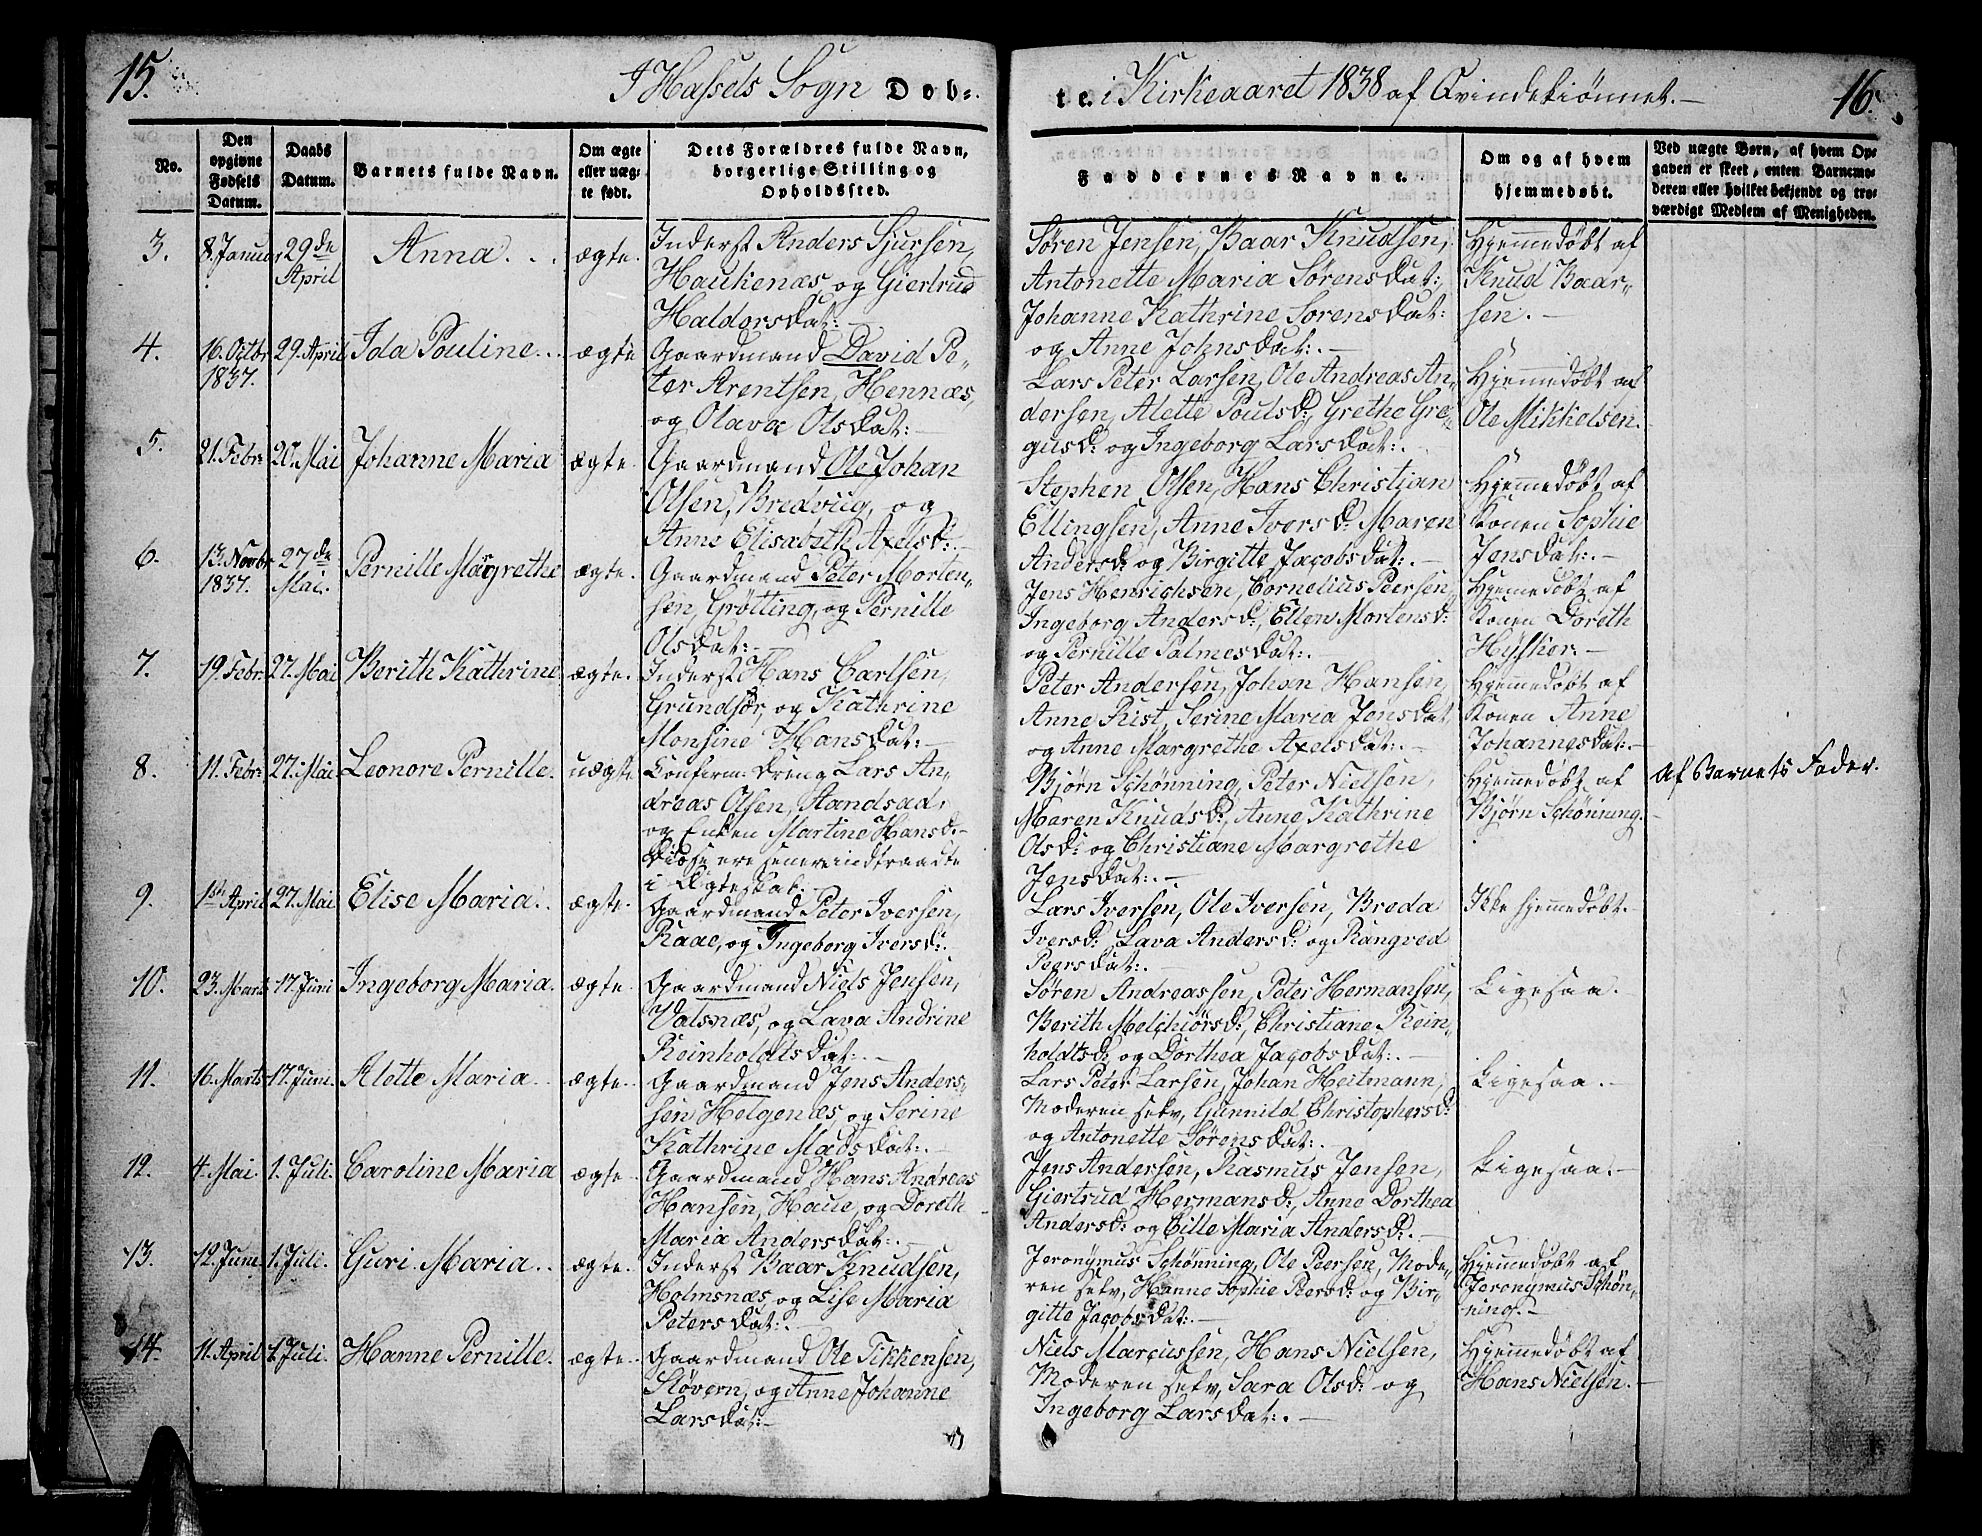 15.
I Hassels Sogn Døb=
te i Kirkeaaret 1838 af Qvindekiønnet.
16.
No.
Den opgivne Fødsels Datum.
Daabs Datum.
Barnets fulde Navn.
Om ægte eller uæg-
te født.
Dets Forældres fulde Navn,
borgerlige Stilling og
Opholdssted.
Faddernes Navne.
Om og af hvem
hjemmedøbt.
Ved uægte Børn, af hvem Op-
gaven er skeet, enten Barnemo-
deren eller hvilket bekjendt og tro-
værdigt Medlem af Menigheden.
3.
8. Januar
29de
April
Anna
ægte.
Inderst Anders Sjursen,
Haukenæs, og Giertrud
Haldorsdat:
Søren Jensen, Baar Knudsen,
Antonette Maria Sørensdat:,
Johanne Kathrine Sørensdat:
og Anne Johnsdat:
Hjemmedøbt af
Knud Baar-
sen.
4.
16. Octbr
1837.
29. April
Ida Pouline
ægte
Gaardmand David Pe-
ter Arentsen, Hennæs,
og Olava Olsdat:
Lars Peter Larsen, Ole Andreas An-
dersen, Alette Pouls D:, Grethe Gre-
gus D: og Ingeborg Larsdat:
Hjemmedøbt af
Ole Mikkelsen.
5.
21. Febr:
20. Mai
Johanne Maria
ægte.
Gaardmand Ole Johan
Olsen, Bredvig, og
Anne Elisabeth Axels D:
Stephen Olsen, Hans Christian
Ellingsen, Anne Ivers D: Maren
Anders D: og Birgitte Jacobsdat:
Hjemmedøbt af
Konen Sophie
Jensdat:
6.
13. Novbr
1837.
27de
Mai.
Pernille Margrethe
ægte.
Gaardmand Peter Morten-
sen, Grøtting, og Pernille
Olsdat:
Jens Henrichsen, Cornelius Peersen,
Ingeborg Anders D:, Ellen Mortens D:
og Pernille Palmesdat:
Hjemmedøbt af
Konen Doreth
Hysker
7.
19. Febr:
27. Mai
Berith Kathrine
ægte.
Inderst Hans Carlsen,
Grundfør, og Kathrine
Monsine Hansdat:
Peter Andersen, Johan Hansen,
Anne Rist, Serine Maria Jensdat
og Anne Margrethe Axelsdat:
Hjemmedøbt af
Konen Anne
Johannesdat:
8.
11. Febr:
27. Mai
Leonore Pernille.
uægte
Confirm: Dreng Lars An-
dreas Olsen, Sandsad,
og Enken Martine Hans D:
Disse ere senere indtraadte
i Ægteskab.
Bjørn Schønning, Peter Nielsen,
Maren Knuds D:, Anne Kathrine
Ols D: og Christiane Margrethe
Jensdat:
Hjemmedøbt af
Bjørn Schønning.
Af Barnets Fader.
9.
1ste April
27. Mai
Elise Maria
ægte.
Gaardmand Peter Iversen,
Raae, og Ingeborg Ivers D:
Lars Iversen, Ole Iversen, Breda
Ivers D: Lava Anders D: og Rangved
Peersdat:
Ikke hjemmedøbt.
10.
23. Marts
17. Juni
Ingeborg Maria.
ægte.
Gaardmand Niels Jensen,
Valsnæs, og Lava Andrine
Reinholdtsdat:
Søren Andreassen, Peter Hermansen,
Berith Melchiors D:, Christiane Rein-
holdts D: og Dorthea Jacobsdat:
Ligesaa.
11.
16. Marts
17. Juni
Alette Maria
ægte.
Gaardmand Jens Anders-
sen Helgenæs, og Serine
Kathrine Madsdat:
Lars Peter Larsen, Johan Heitmann,
Moderen selv, Gunnild Christophers D:
og Antonette Sørensdat:
Ligesaa.
12.
4. Mai
1. Juli.
Caroline Maria
ægte.
Gaardmand Hans Andreas
Hansen, Haue, og Doreth
Maria Andersdat:
Jens Andersen, Rasmus Jensen,
Giertrud Hermans D:, Anne Dorthea
Anders D: og Cille Maria Anders D:
Ligesaa.
13.
12. Juni
1. Juli.
Guri Maria
ægte.
Inderst Baar Knudsen,
Holmsnæs, og Lise Maria
Petersdat:
Jeronymus Schønning, Ole Peersen, Mode-
ren selv, Hanne Sophie Peers D: og Bir-
gitte Jacobsdat:
Hjemmedøbt af
Jeronymus Schøn-
ning.
14.
11. April
1. Juli.
Hanne Pernille.
ægte.
Gaardmand Ole Tikkensen,
Støvern, og Anne Johanne
Larsdat:
Niels Marcussen, Hans Nielsen,
Moderen selv, Sara Ols D: og
Ingeborg Larsdat:
Hjemmedøbt af
Hans Nielsen.